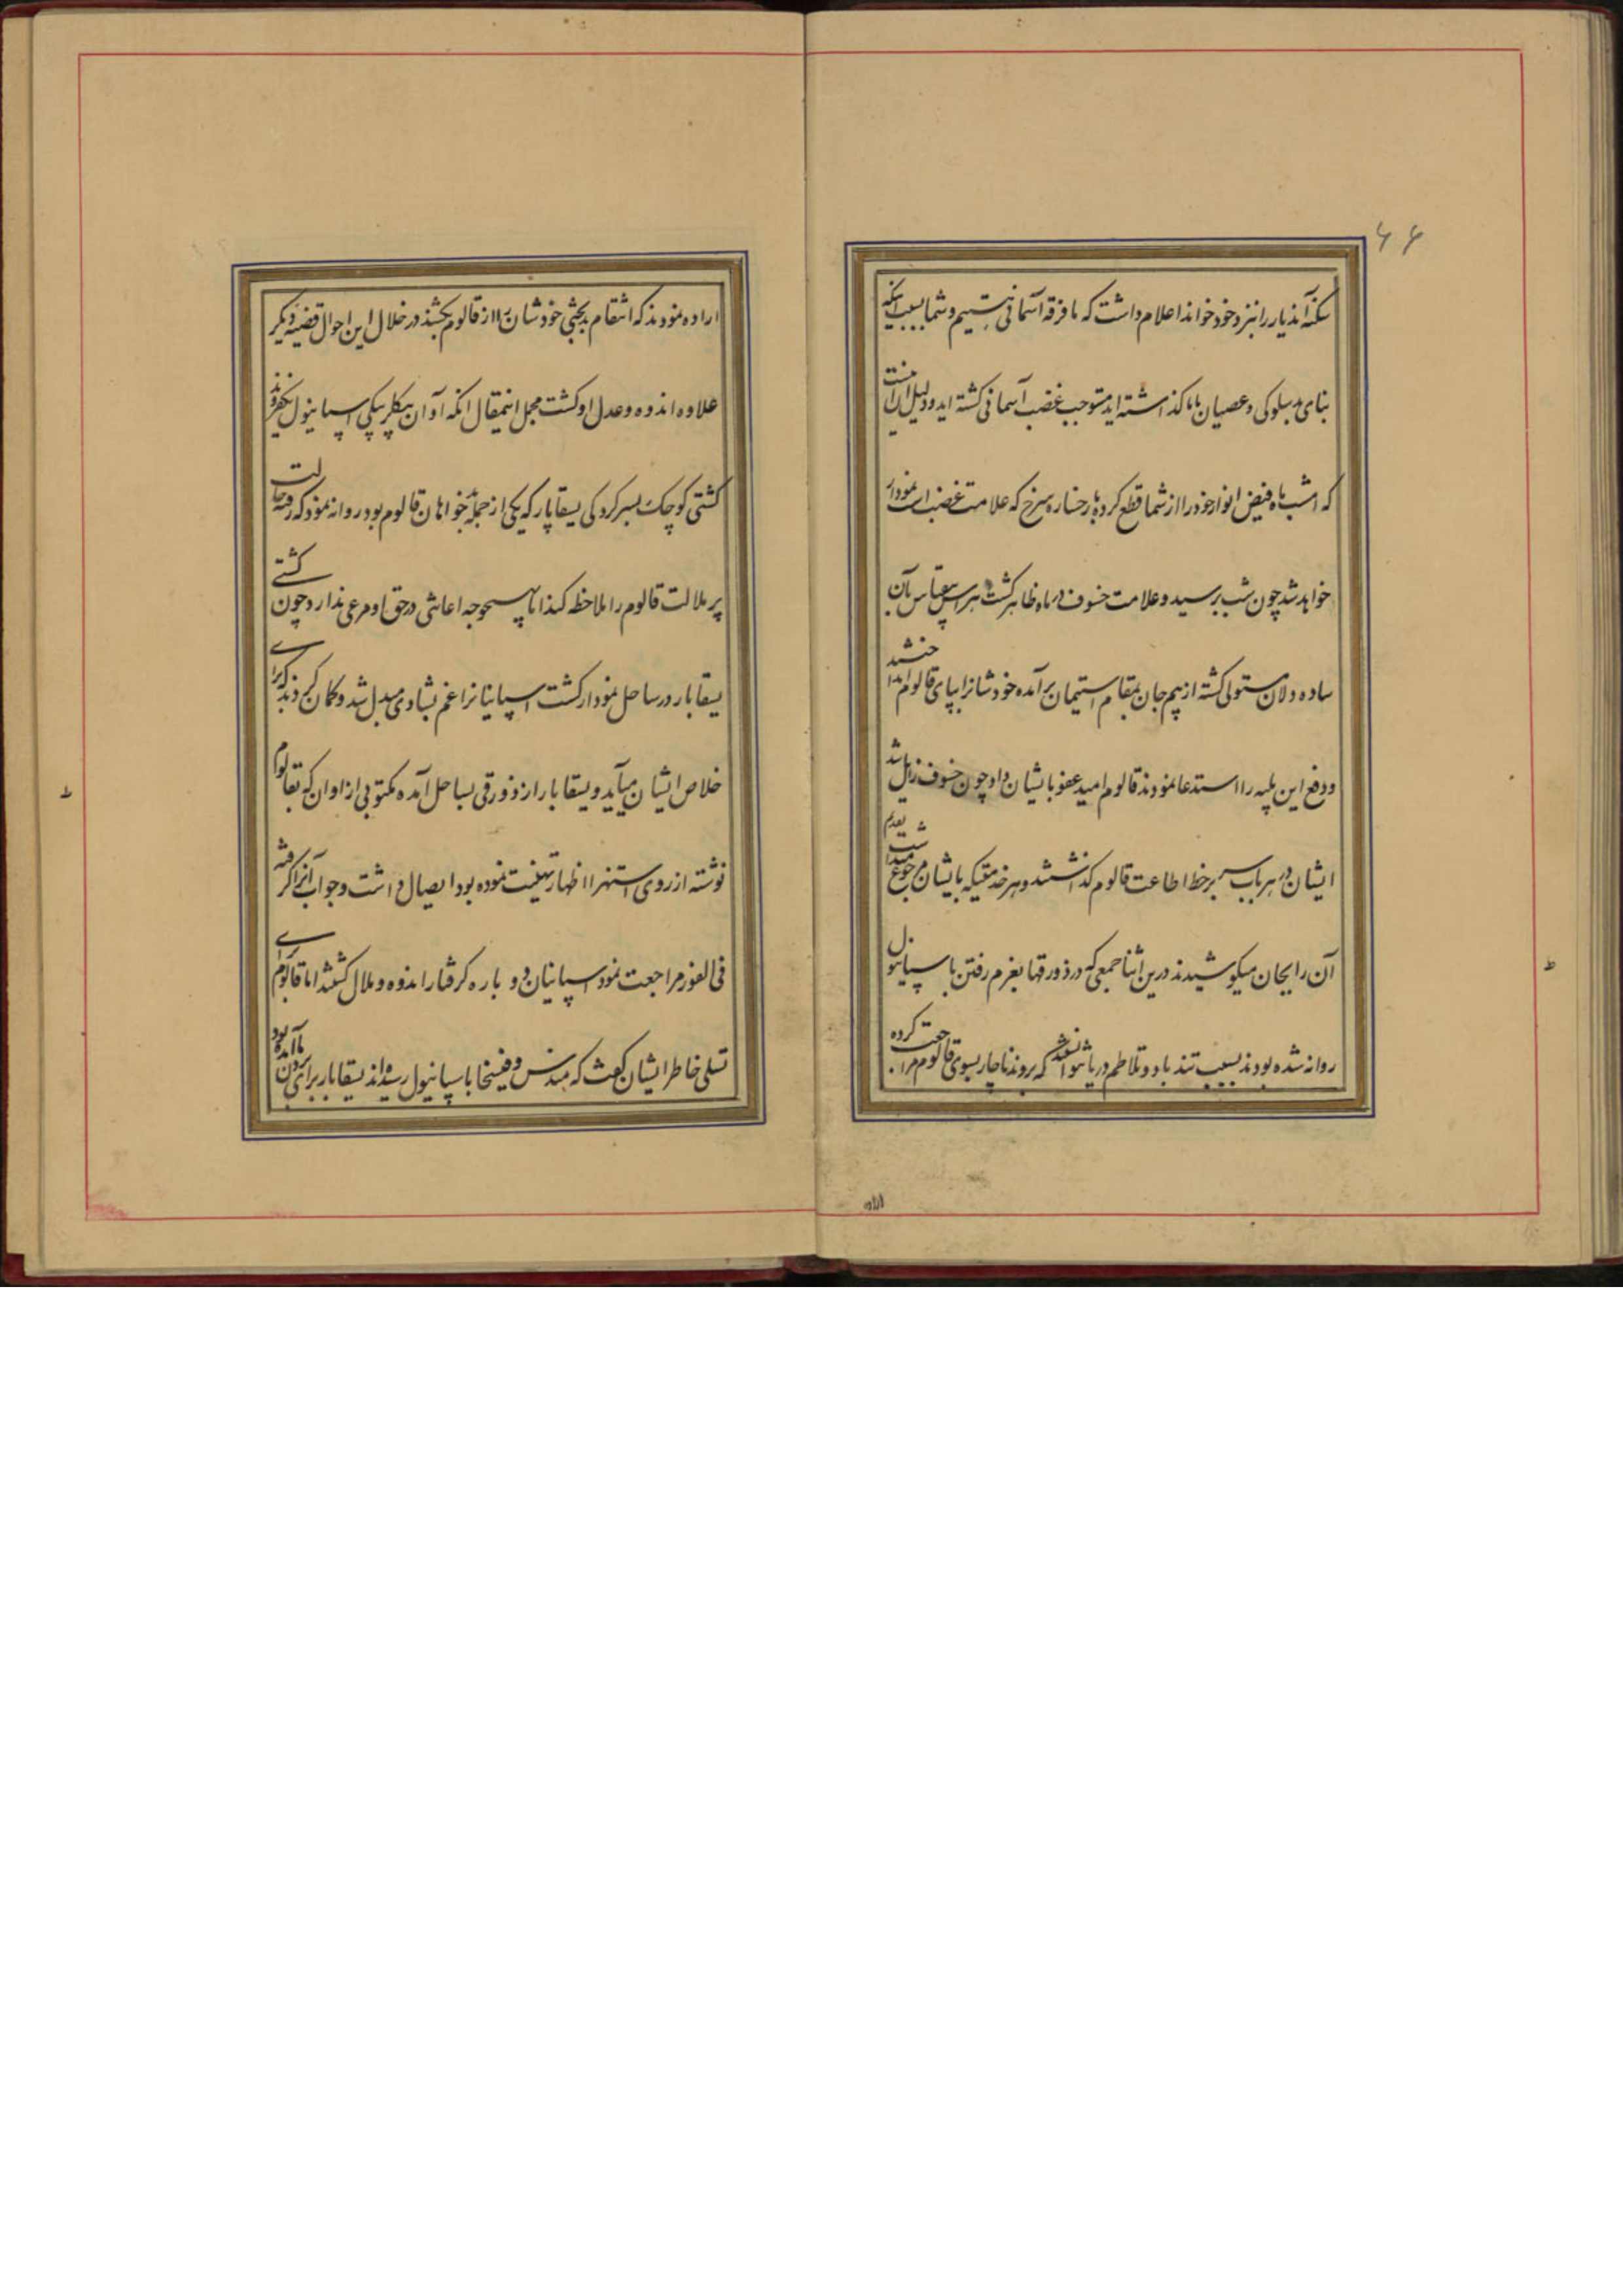 ۶۶
سکنه آندیار را بنزد خود خوانده اعلام داشت که ما فرقه آسمانی هستیم و شما بسبب اینکه
بنای بدسلوکی و عصیان باما گذاشته اید مستوجب غضب آسمانی گشته اید و دلیل این آنست
که امشب ماه فیض انوار خود را از شما قطع کرده بارخساره سرخ که علامت غضب است نمودار
خواهد شد چون شب برسید و علامت خسوف در ماه ظاهر گشت هراس بیقیاس بآن
ساده دلان مستولی گشته از بیم جان بمقام استیمان برآمده خودشانرا بپای قالوم انداختند
و دفع این بلیه را استدعا نمودند قالوم امید عفو بایشان داد چون خسوف زایل شد
ایشان در هر باب سر بر خط اطاعت قالوم گذاشتند و هر خدمتیکه بایشان رجوع میشد بتقدیم
آن رایجان میکوشیدند درین اثنا جمعی که در زورقها بعزم رفتن باسپانیول
روانه شده بودند بسبب تند باد و تلاطم دریا نتوانستند که بروند ناچار بسوی قالوم مراجعت کرده
اراده
اراده نمودند که انتقام بدبختی خودشان را از قالوم بکشند در خلال این احوال قضیه دیگر
علاوه اندوه وعدل او گشت مجمل اینمقال آنکه آوان بیکلربیکی اسپانیول
کشتی کوچک بسرکردگی یسقابار که یکی از جمله خواهان قالوم بود روانه نمود که رفته حالت
پر ملالت قالوم را ملاحظه کند اما بهیچوجه اعانتی در حق او مرعی ندارد چون کشتی
یسقابار در ساحل نمودار گشت اسپانیانرا غم بشادی مبدل شد و گمان کردند که برای
خلاص ایشان میآید و یسقابار از زورقی بساحل آمده مکتوبی از اوان که بقالوم
نوشته از روی استهزا اظهار تهنیت نموده بود ایصال داشت و جواب آنرا گرفته
فی الفور مراجعت نمود اسپانیان دو باره گرفتار اندوه و ملال گشتند اما قالوم برای
تسلی خاطر ایشان گفت که مندس و فیسخا باسپانیول رسیده اند یسقابار برای بردن ما آمده بود